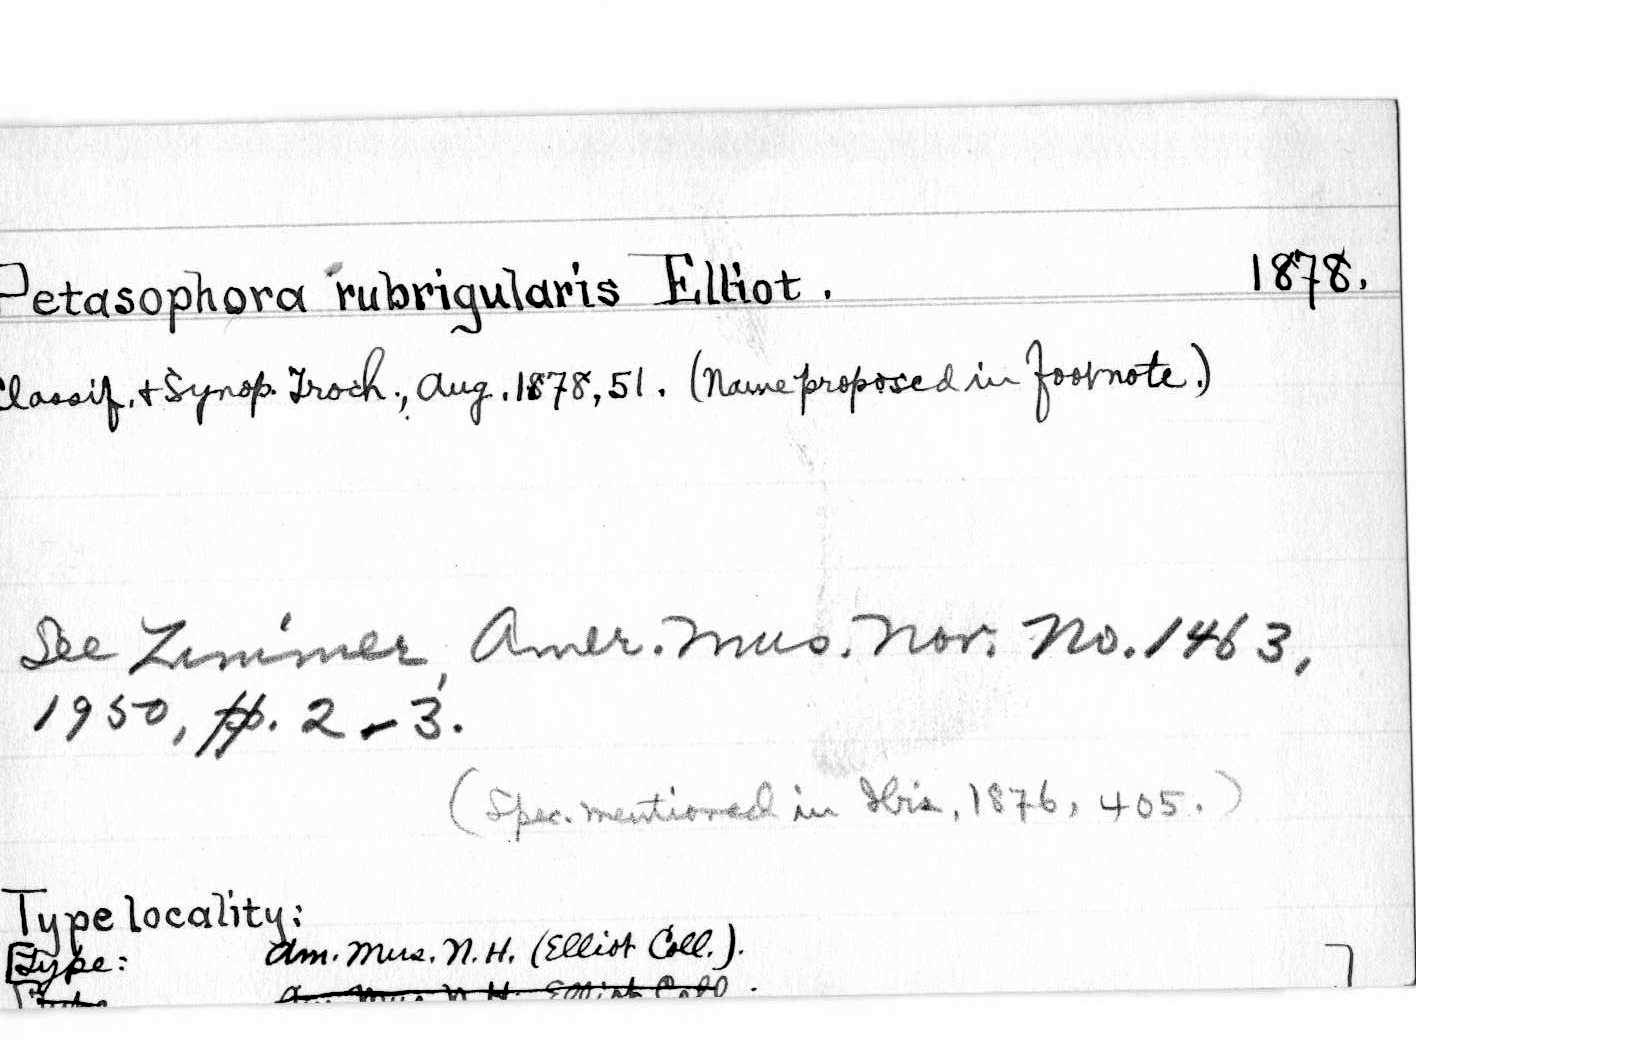 Petasophora rubrigularis Elliot. 1878.
Classif. & Synop. Troch., Aug. 1878, 51. (Name proposed in footnote.)
See Zimmer, Amer. Mus. Nov. No. 1463,
1950, pp. 2-3.
(Spec. mentioned in Ibis, 1876, 405.)
Type locality:
Type: Am. Mus. N. H. (Elliot Coll.).
Am Mus N. H. Elliot Coll.